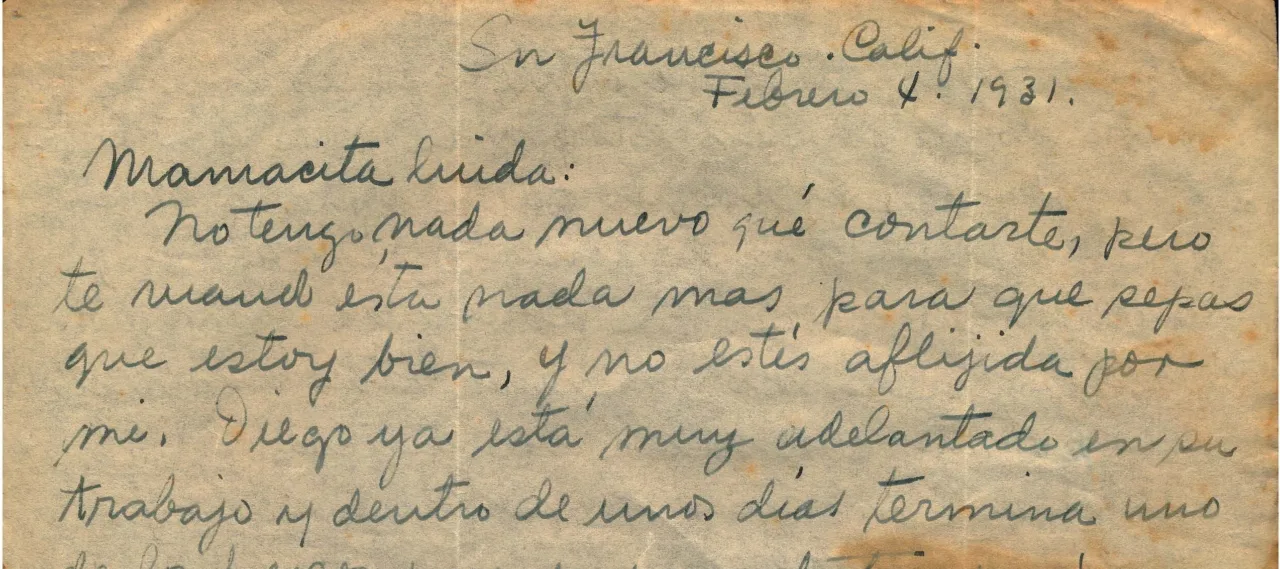 Sn Francisco. Calif.
Febrero 4. 1931.
Mamacita linda:
No tengo nada nuevo qué contarte, pero
te mand ésta nada mas para que sepas
que estoy bien, y no estés aflijida por
mi. Diego ya está muy adelantado en su
trabajo y dentro de unos días termina uno
de los